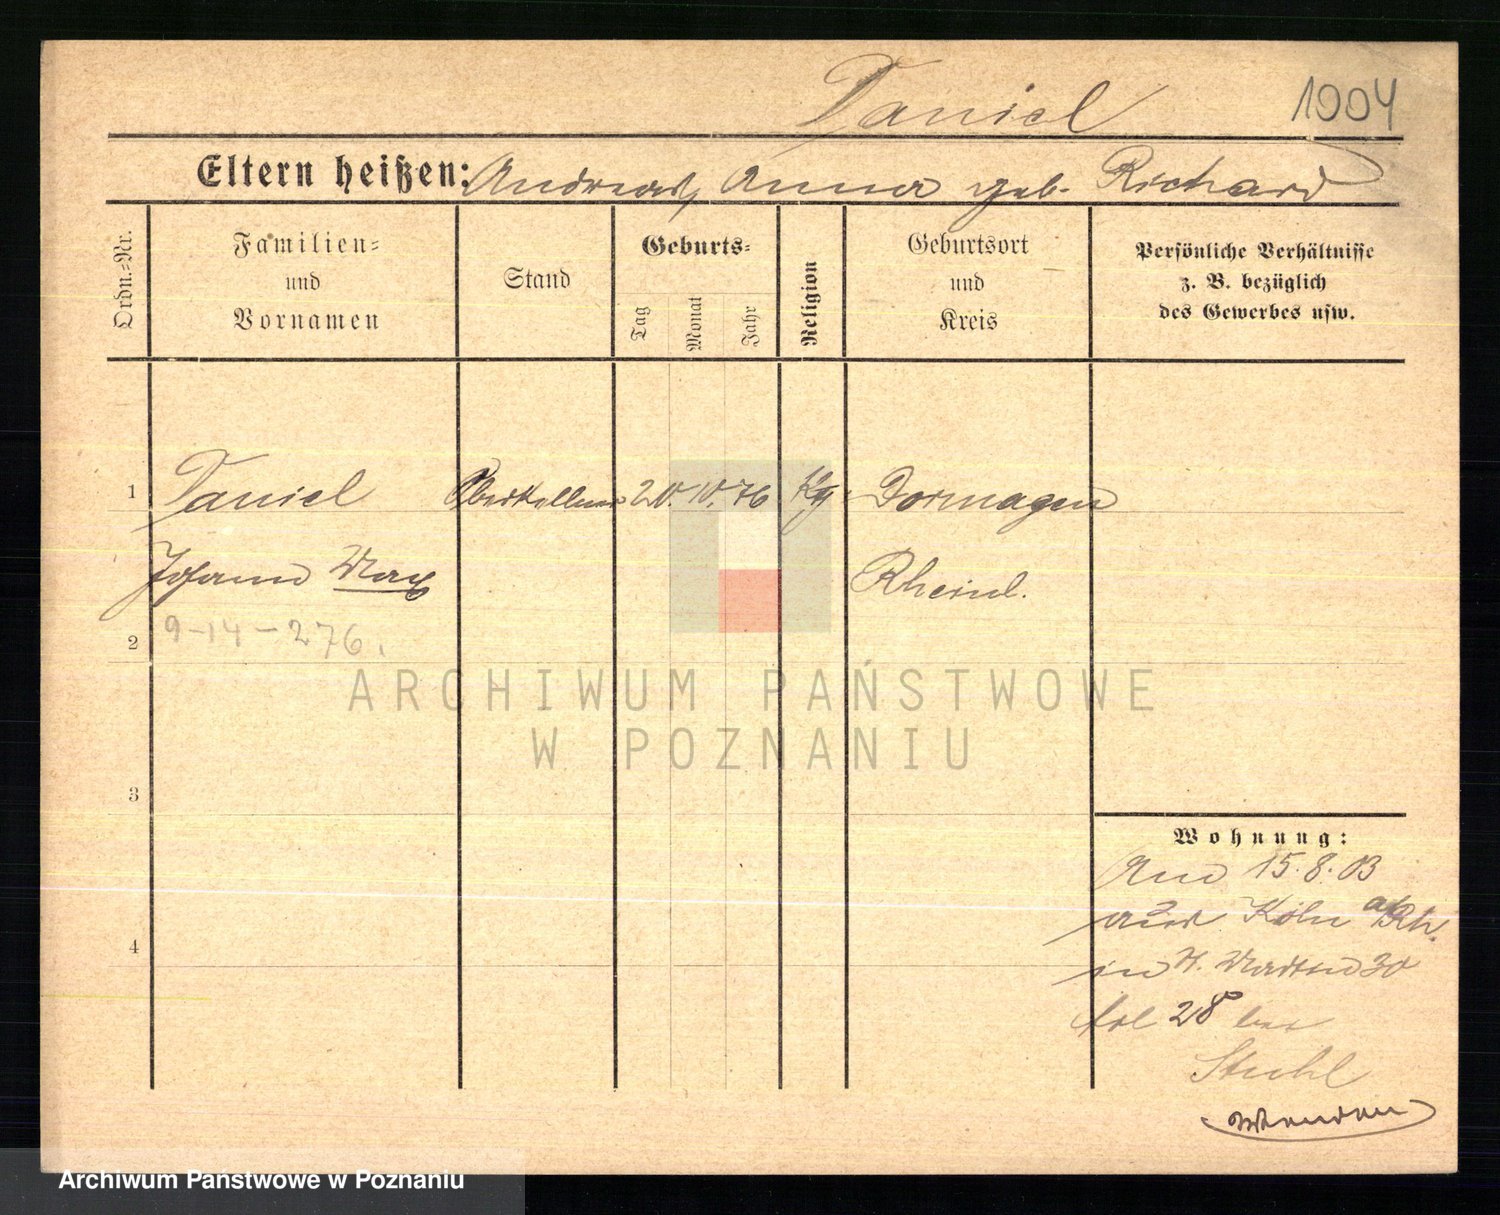 Daniel
1904
Eltern heißen: Andreas, Anna geb. Richard
Ordn.=Nr.
Familien=
und
Vornamen
Stand
Geburts=
Tag
Monat
Jahr
Religion
Geburtsort
und
Kreis
Persönliche Verhältnisse
z. B. bezüglich
des Gewerbes usw.
1
Daniel
Oberkellner
20. 10. 76
Dormagen
Johann Max
Rheinl.
2
9-14-276.
3
4
Wohnung:
15.8.03
aus Köln a/Rh.
in 30
28 bei
Stuhl
ARCHIWUM PAŃSTWOWE
W POZNANIU
Archiwum Państwowe w Poznaniu